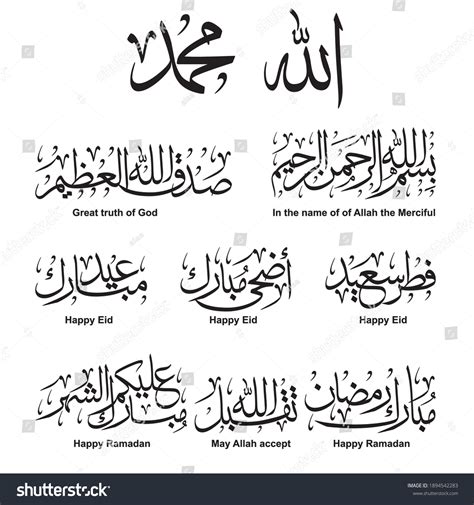 الله محمد
بسم الله الرحمن الرحيم صدق الله العظيم
In the name of of Allah the Merciful
Great truth of God
فطر سعيد أضحى مبارك عيد مبارك
Happy Eid Happy Eid Happy Eid
مبارك رمضان تقبل الله مبارك عليكم الشهر
Happy Ramadan May Allah accept Happy Ramadan
shutterstock
IMAGE ID: 1894542283
www.shutterstock.com